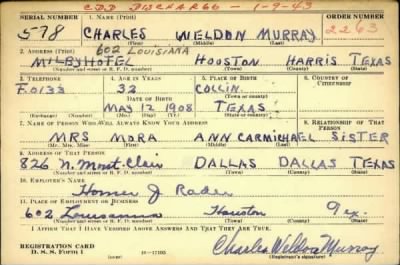 CDD DISCHARGED - 1-9-43
SERIAL NUMBER 1. NAME (Print) ORDER NUMBER
578 CHARLES WELDON MURRAY 2263
(First) (Middle) (Last)
2. ADDRESS (Print) 602 LOUISIANA
MILBY HOTEL HOUSTON HARRIS TEXAS
(Number and street or R. F. D. number) (Town) (County) (State)
3. TELEPHONE 4. AGE IN YEARS 5. PLACE OF BIRTH 6. COUNTRY OF CITIZENSHIP
F.0133 32 COLLIN
DATE OF BIRTH (Town or county)
MAY 12 1908 TEXAS
(Exchange) (No.) (Mo.) (Day) (Yr.) (State or country)
7. NAME OF PERSON WHO WILL ALWAYS KNOW YOUR ADDRESS 8. RELATIONSHIP OF THAT PERSON
MRS MORA ANN CARMICHAEL SISTER
(Mr., Mrs., Miss) (First) (Middle) (Last)
9. ADDRESS OF THAT PERSON
826 N. Mont Clair DALLAS DALLAS TEXAS
(Number and street or R. F. D. number) (Town) (County) (State)
10. EMPLOYER'S NAME
Homer J Rader
11. PLACE OF EMPLOYMENT OR BUSINESS
602 Louisianna Houston Tex.
(Number and street or R. F. D. number) (Town) (County) (State)
I AFFIRM THAT I HAVE VERIFIED ABOVE ANSWERS AND THAT THEY ARE TRUE.
REGISTRATION CARD
D. S. S. FORM 1 16-17105
Charles Weldon Murray
(Registrant's signature)